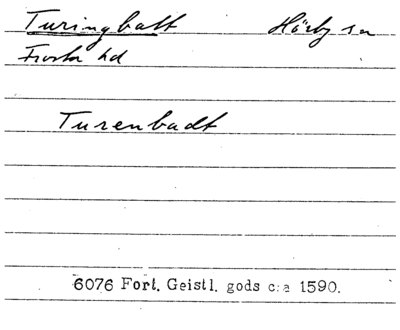 Turingbatt Hörby sn
Frosta hd
Turenbadt
6076 Fort. Geistl. gods c:a 1590.